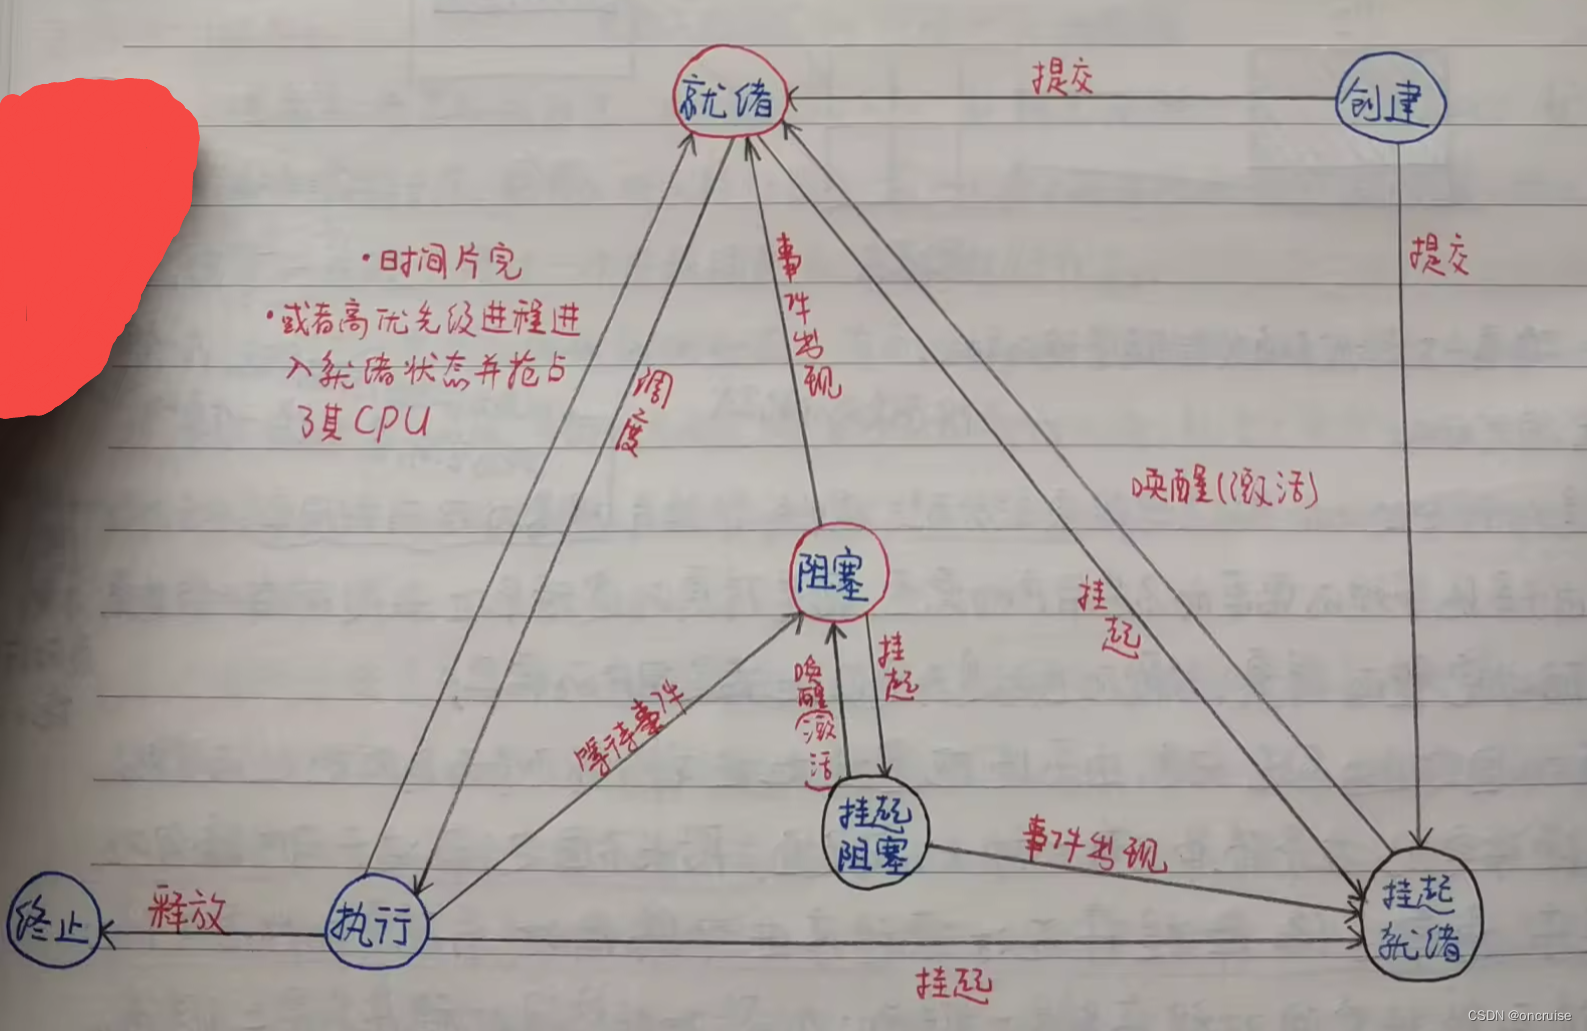 就绪
提交
创建
提交
·时间片完
·或者高优先级进程进
入就绪状态并抢占
了其CPU
调度
事件出现
唤醒(激活)
挂起
阻塞
挂起
唤醒(激活)
等待事件
挂起
阻塞
事件出现
挂起
就绪
终止
释放
执行
挂起
CSDN @oncruise